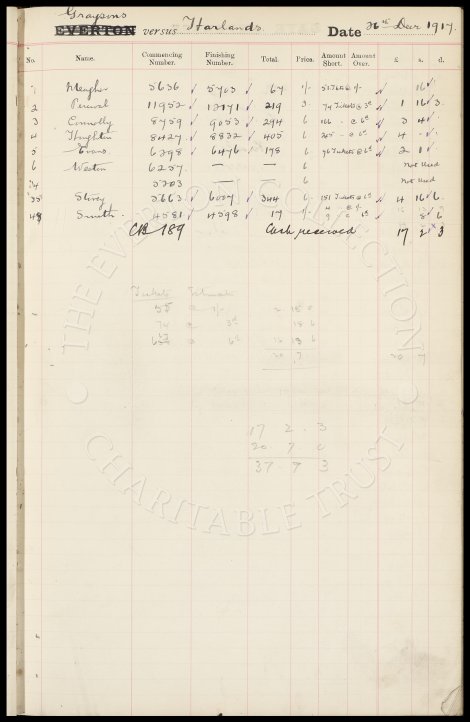 Graysons
EVERTON versus Harlands Date 26th Decr 1917.
No. Name. Commencing Number. Finishing Number. Total. Price. Amount Short. Amount Over. £ s. d.
1 Meagher 5636 5703 67 1/- 16
2 Percival 11952 12171 219 3 74 Tickets @ 3d 1 16 3
3 Connolly 8759 9053 294 6 166 - @ 6d 3 4 -
4 Houghton 8427 8832 405 6 245 - @ 6d 4 - -
5 Evans 6298 6476 178 6 96 Tickets @ 6d 2 1
6 Weston 6257 — — 6 Not Used
5203 — — 6 Not Used
35 Storey 5663 6007 344 6 151 Tickets @ 6d 4 16 6
48 Smith 4581 4598 17 1/- 8 6
CB 189 Cash received 17 2 3
Tickets Estimate
55 @ 1/- 2 15 0
74 @ 3d 18 6
@ 6d 16 13 6
20 7 20 7
17 2 3
20 7 0
37 7 3
THE EVERTON COLLECTION
CHARITABLE TRUST